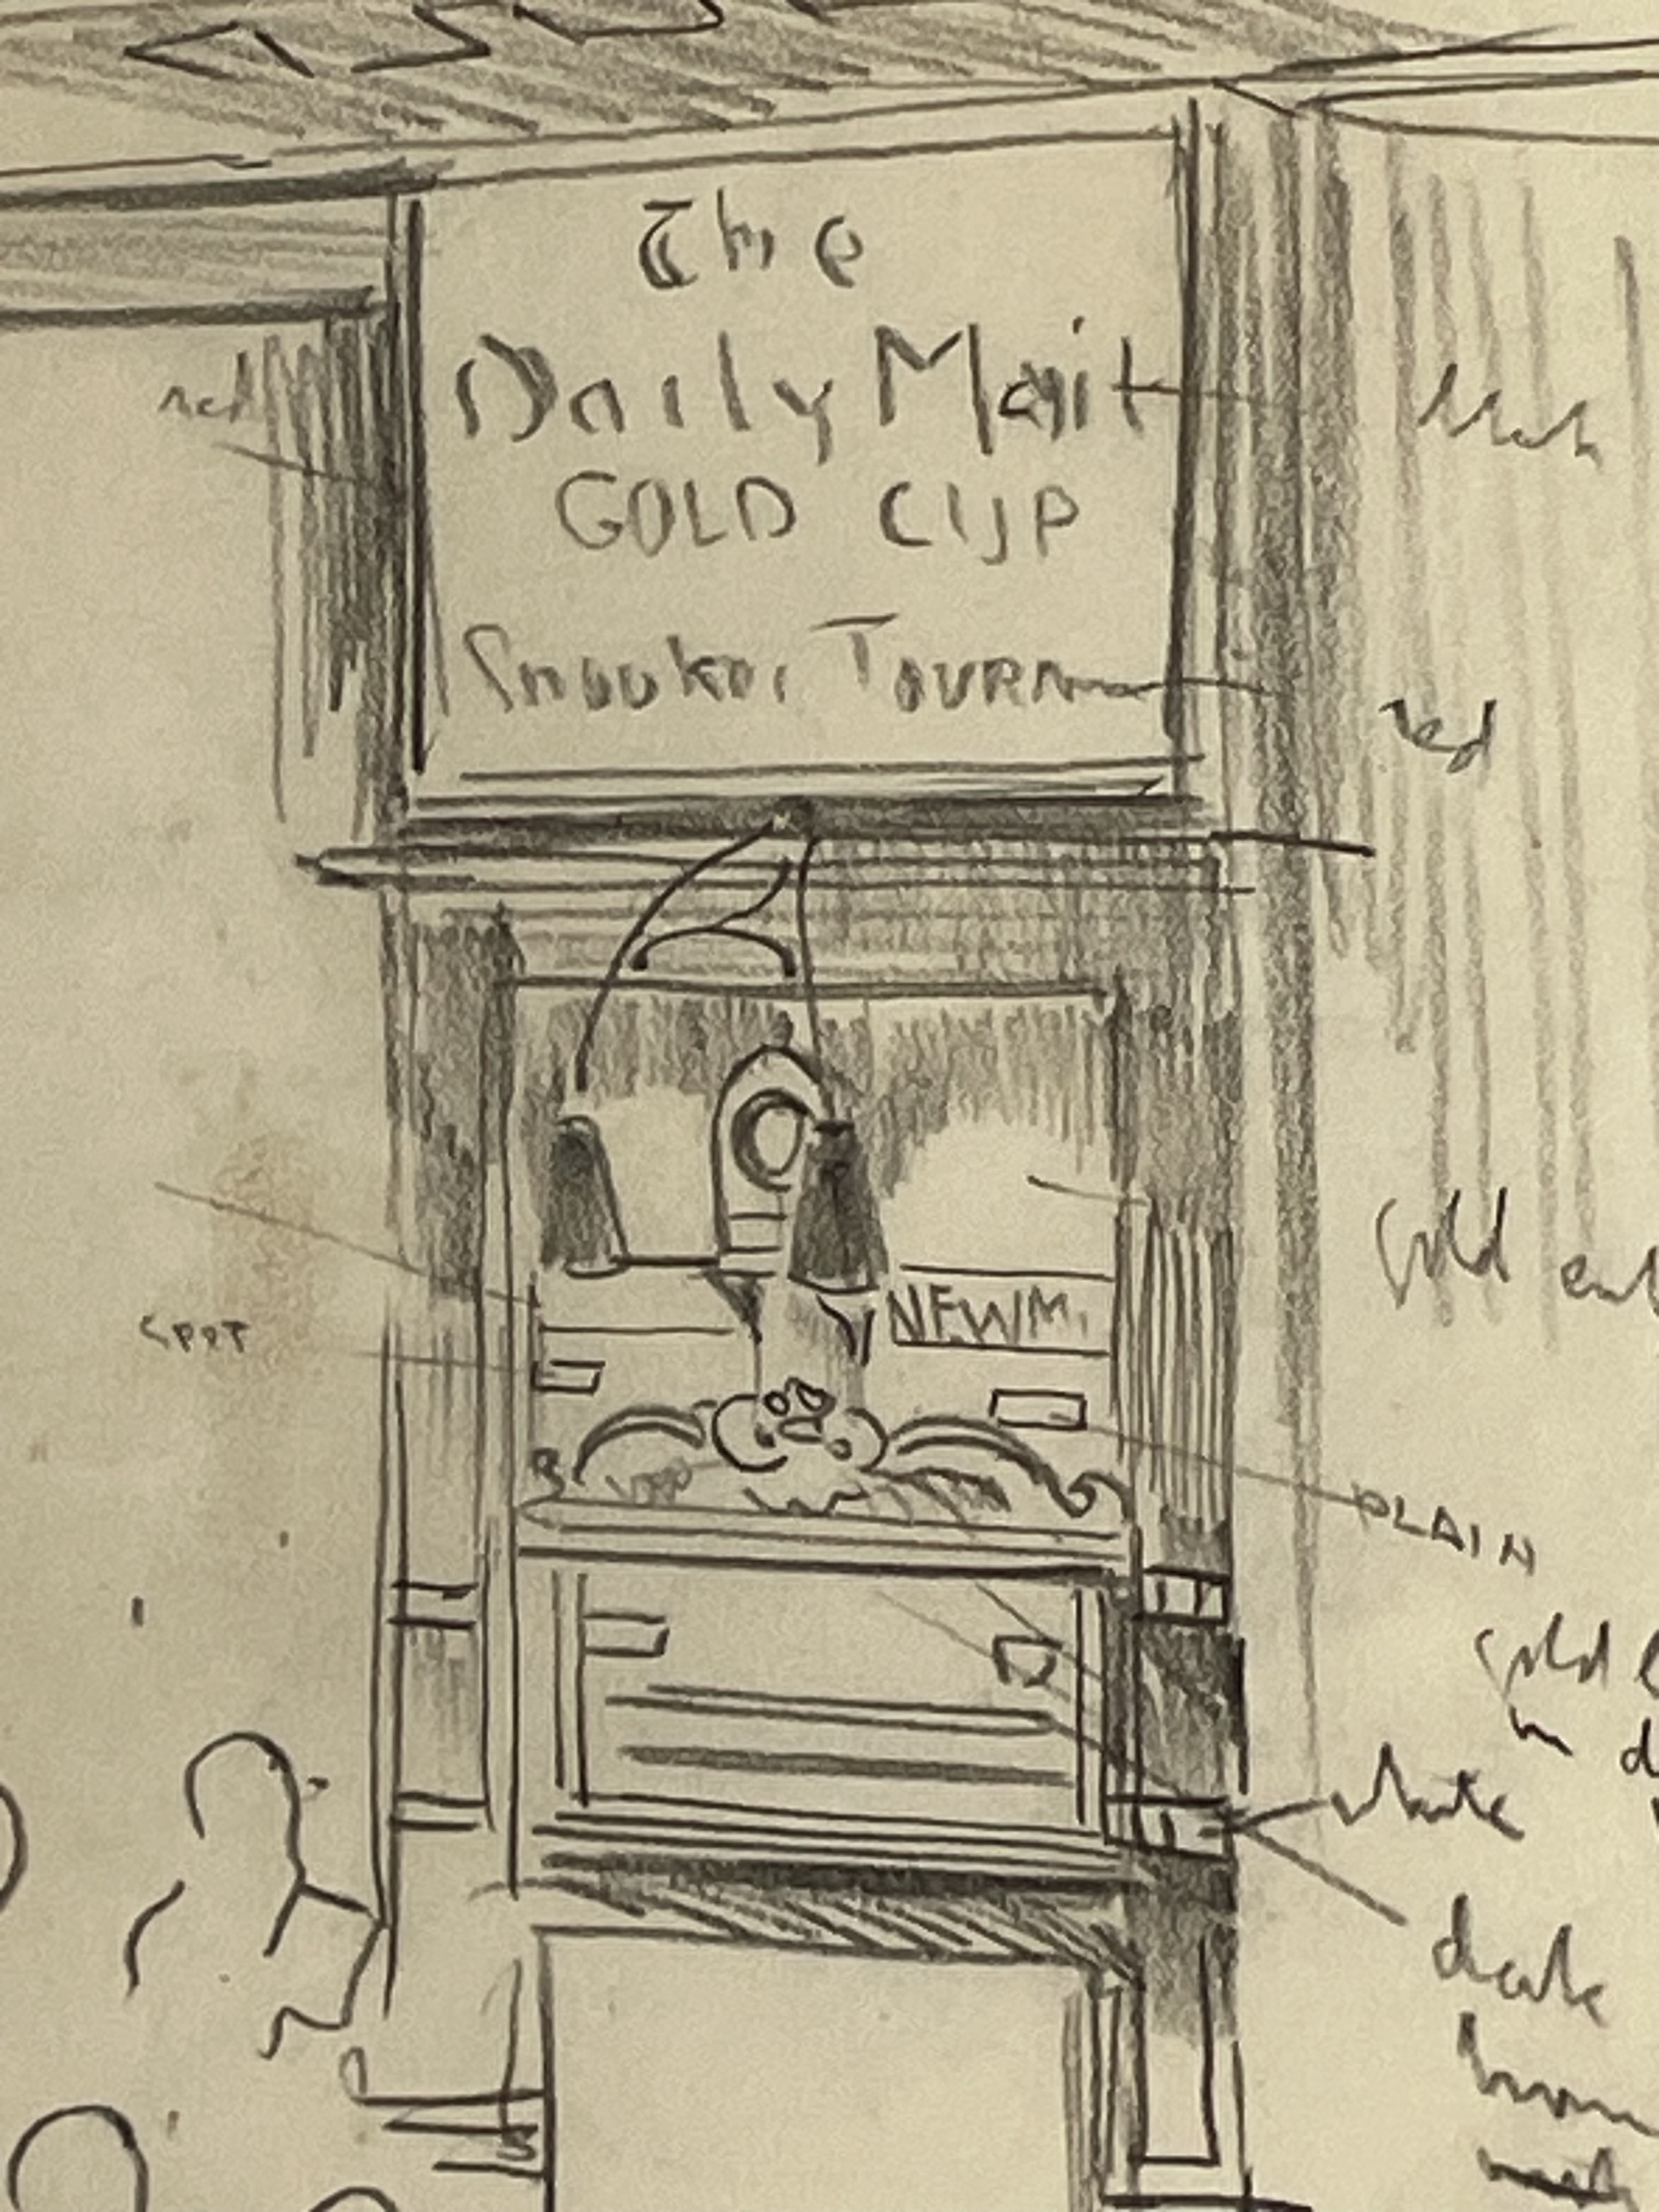 The
Daily Mail
GOLD CUP
Snooker Tourn
red
black
red
gold
SPOT
NEWM.
PLAIN
gold
in
white
dark
brown